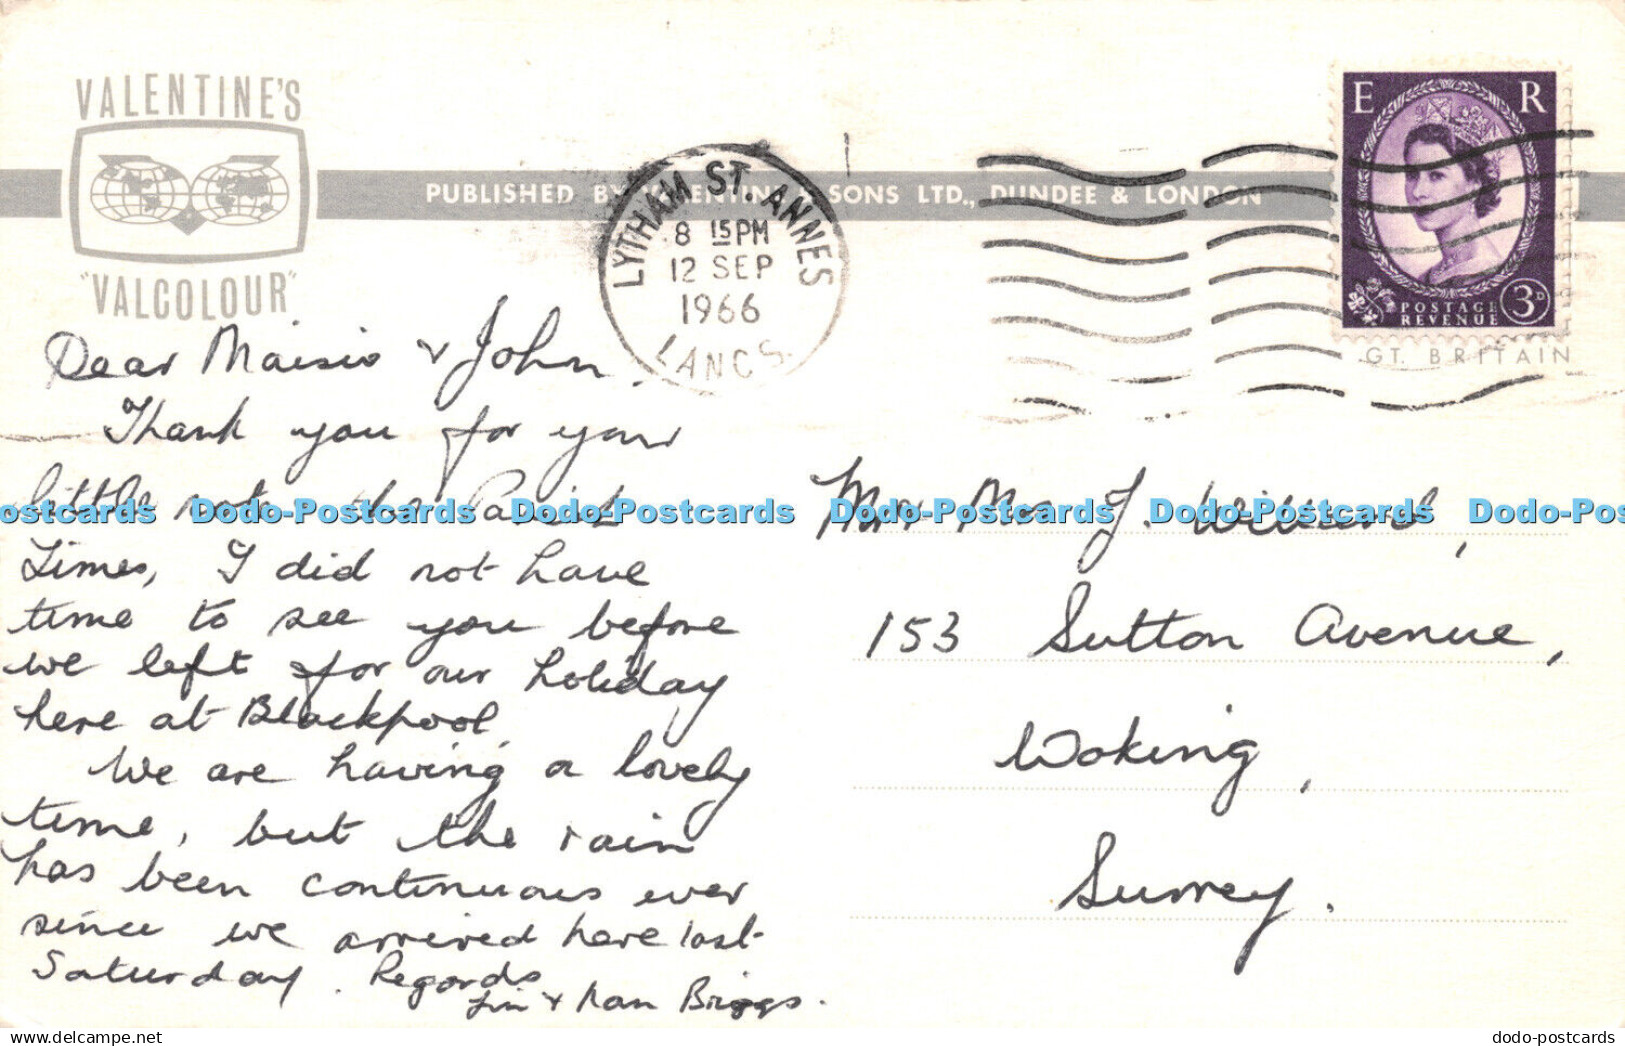 VALENTINE'S
"VALCOLOUR"
PUBLISHED BY VALENTINE & SONS LTD., DUNDEE & LONDON
LYTHAM ST. ANNES
8 15 PM
12 SEP
1966
LANCS.
E R
POSTAGE
REVENUE
3D
GT. BRITAIN
Dear Maisie & John,
Thank you for your
little note & the Parish
Times, I did not have
time to see you before
we left for our holiday
here at Blackpool.
We are having a lovely
time, but the rain
has been continuous ever
since we arrived here last
Saturday. Regards
Briggs.
Mr & Mrs J.
153 Sutton Avenue,
Woking,
Surrey.
Dodo-Postcards Dodo-Postcards Dodo-Postcards Dodo-Postcards
dodo-postcards
delcampe.net